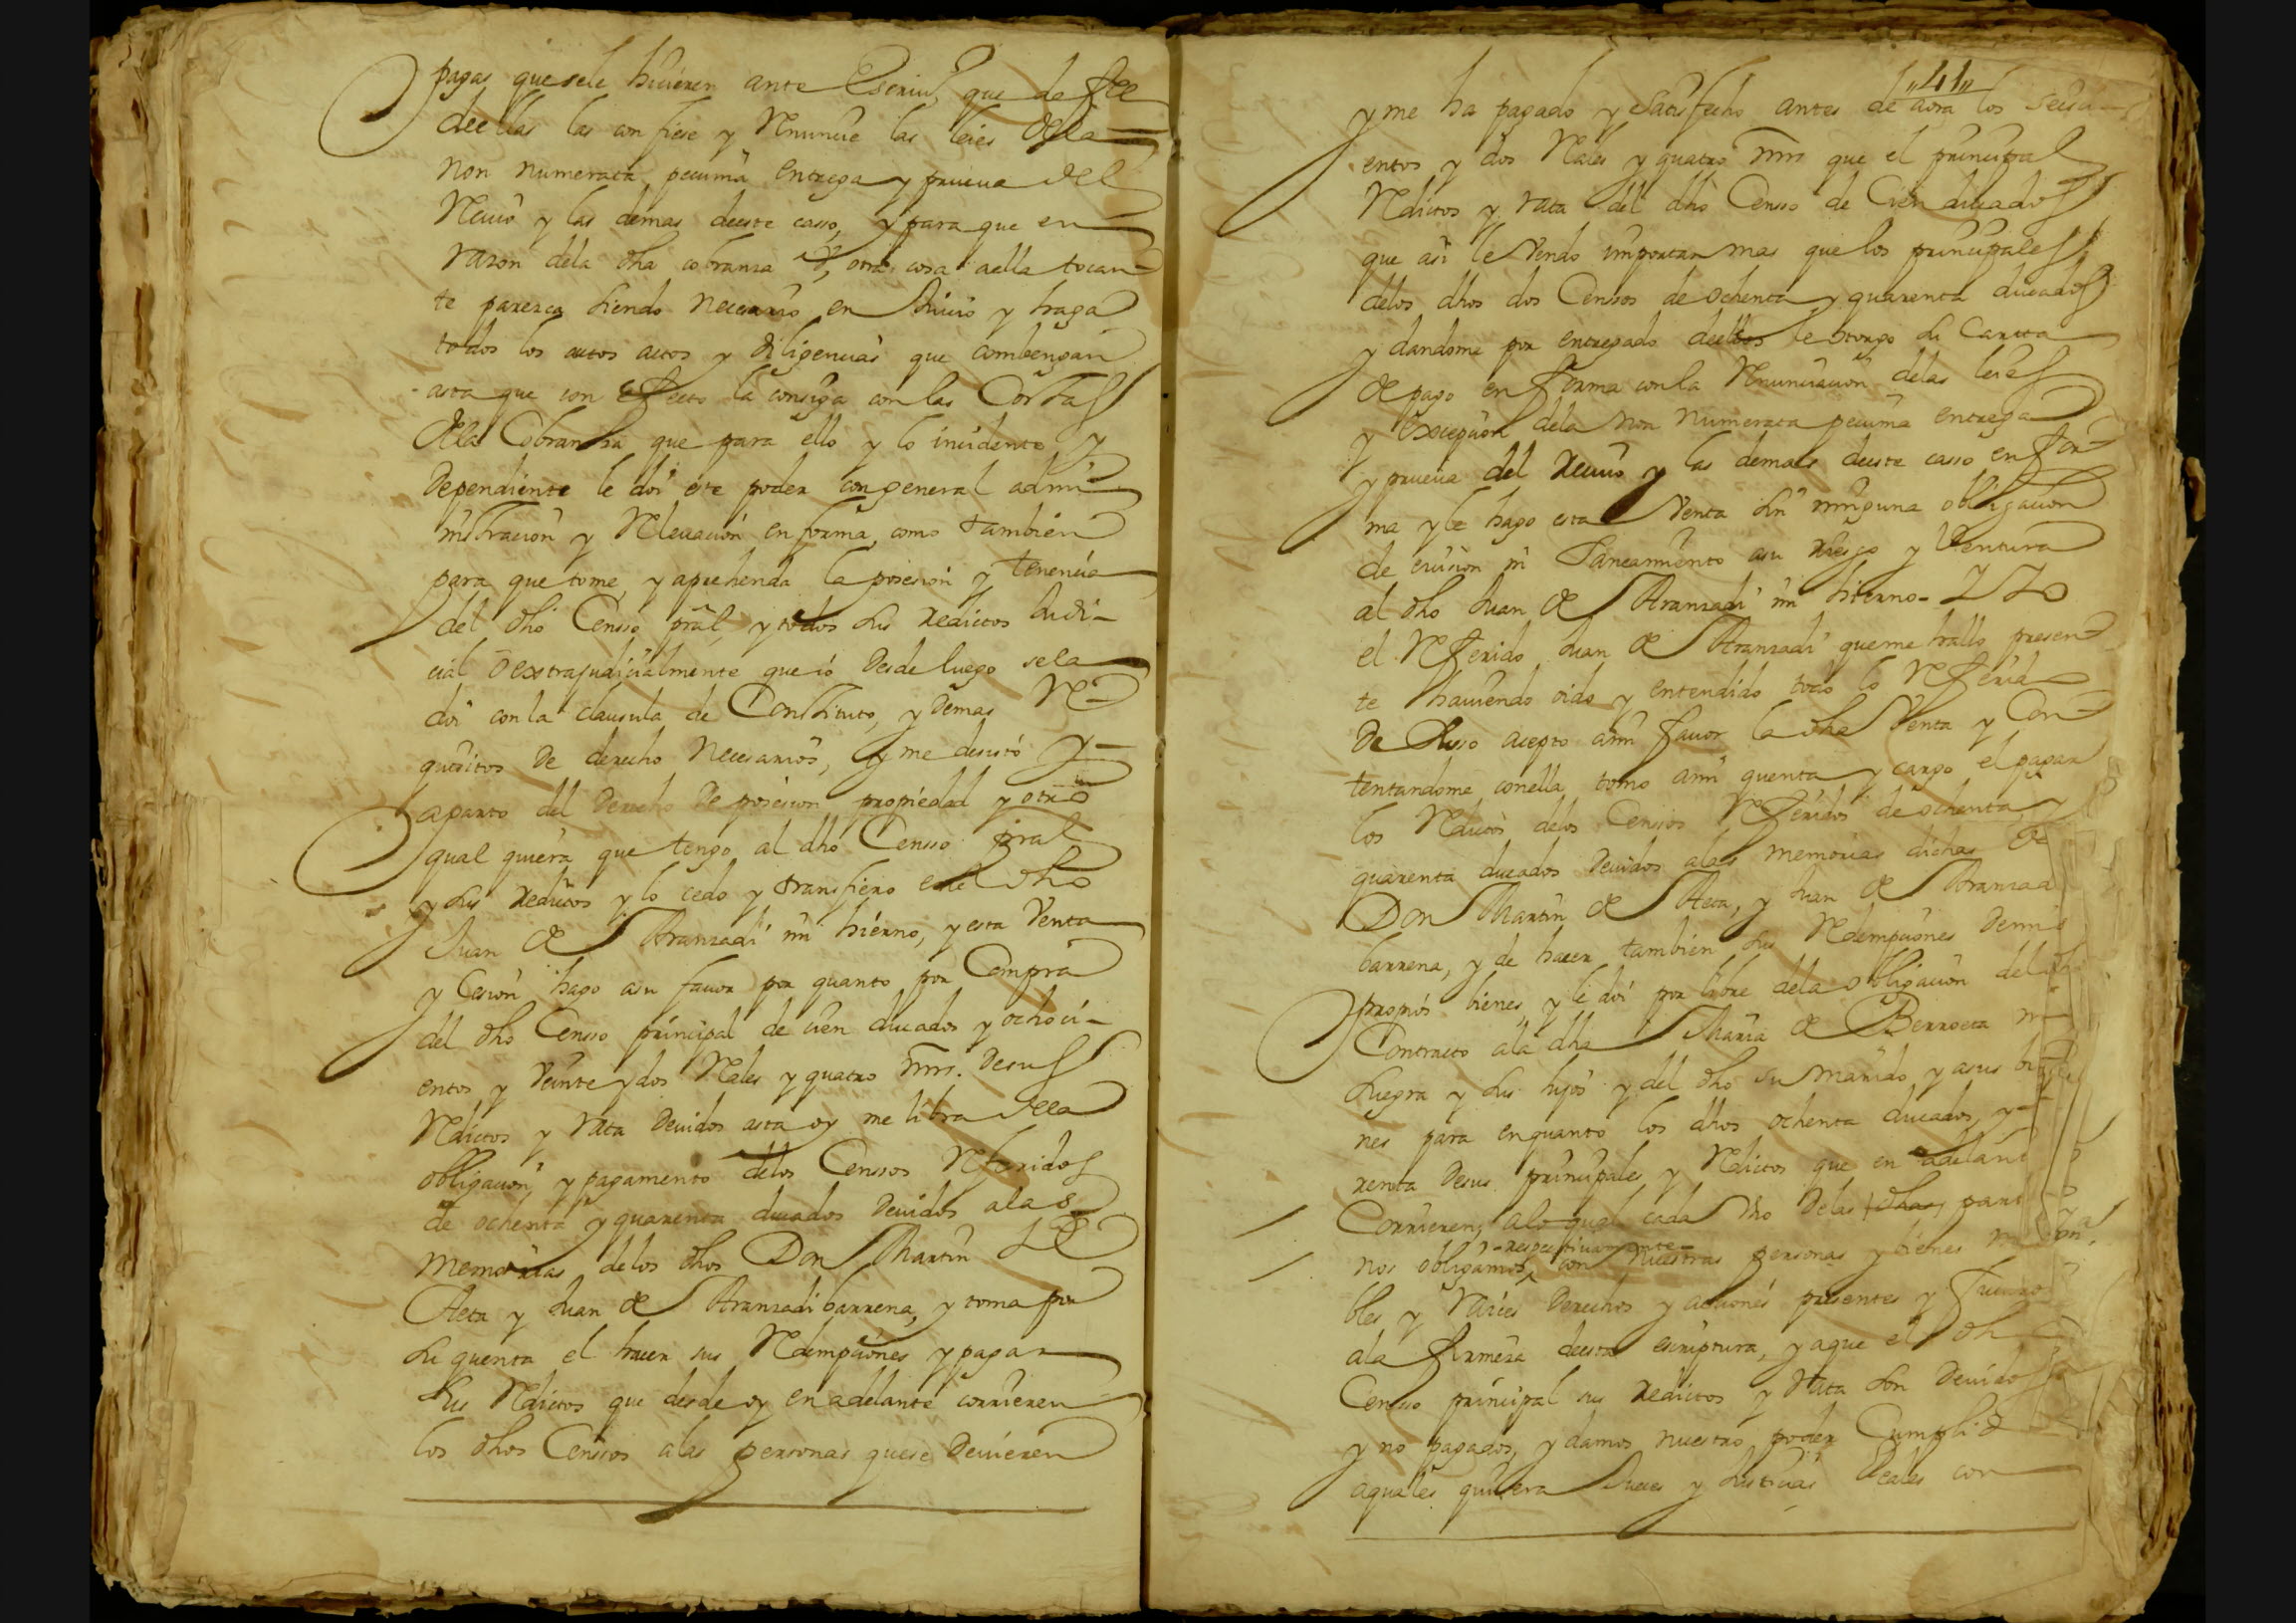 pagas que se le hicieren ante Escriu.º que de fee
de ellas las confiese y Renuncie las leies de la
non numerata pecunia entrega y prueua del
Reciuo y las demas de este casso, y para que en
razon de la dha cobranza ò, otra cosa a ella tocan-
te parezca siendo necesario en Juicio y haga
todos los autos actos y diligencias que combengan
asta que con efecto la consiga con las Costas
de la Cobranza que para ello y lo incidente y
Dependiente le doi este poder con general admi-
nistracion y Releuacion en forma, como tambien
para que tome, y aprehenda la posesion y tenencia
del dho Censso pral, y todos sus redictos Judi-
cial ò extrajudicialmente que io Desde luego se la
doi con la clausula de Constituto, y demas Re-
quesitos de derecho necesarios, y me desisto y
aparto del Derecho de posesion propiedad y otro
qual quiera que tengo al dho Censso pral
y sus reditos y lo cedo y transfiero en el dho
Juan de Aranzadi mi hierno, y esta Venta
y Cesion hago a su fauor por quanto por Compra
del dho Censso principal de cien ducados y ochoci-
entos y Veinte y dos Reales y quatro mrs. de sus
Redictos y rata deuidos asta oy me libra de la
obligacion, y pagamento de los Censsos Referidos
de ochenta y quarenta ducados deuidos a las
memorias de los dhos Don Martin de
Aeta y Juan de Aranzadi barrena, y toma por
su quenta el hacer sus Redempciones y pagar
sus Redictos que desde oy en adelante corrieren
los dhos Censsos a las personas que se Deuieren
"41"
y me ha pagado y satisfecho antes de aora los seisci-
entos y dos Reales y quatro mrs que el principal
Redictos y rata del dho Censso de Cien ducados
que asi le Vendo importan mas que los principales
de los dhos dos Censsos de ochenta y quarenta ducados
y dandome por entregado de ellos le otorgo su Carta
de pago en forma con la Renunciacion de las leies
y excepcion de la non numerata pecunia entrega
y prueua del reciuo y las demas de este casso en for-
ma y le hago esta Venta sin ninguna obligacion
de euision ni saneamiento a su riesgo y Ventura
al dho Juan de Aranzadi mi hierno- Y Yo
el Referido Juan de Aranzadi que me hallo presen-
te hauiendo oido y entendido todo lo Referido
De susso acepto a mi fauor la dha Venta y Con-
tentandome con ella tomo a mi quenta y cargo el pagar
los Redictos de los Censsos Referidos de ochenta y
quarenta ducados deuidos a las memorias dichas de
Don Martin de Aeta, y Juan de Aranzadi
barrena, y de hacer tambien sus Redempciones de mis
propios bienes, y le doi por libre de la obligacion del dho
Contracto a la dha Maria de Berroeta mi
suegra y sus hijos y del dho su marido y a sus bie
nes para en quanto los dhos ochenta ducados, y
renta de sus principales y Redictos que en adelant
Corrieren, a lo qual cada Vno de las dhas part
- respectiuamente -
nos obligamos, con nuestras personas y bienes m
bles y raices Derechos y acciones presentes y futuros
a la firmeza de esta escriptura, y a que el dho
Censso principal sus redictos y rata son deuidos
y no pagados, y damos nuestro poder Cumplido
a quales quiera Jueces y Justicias Reales con